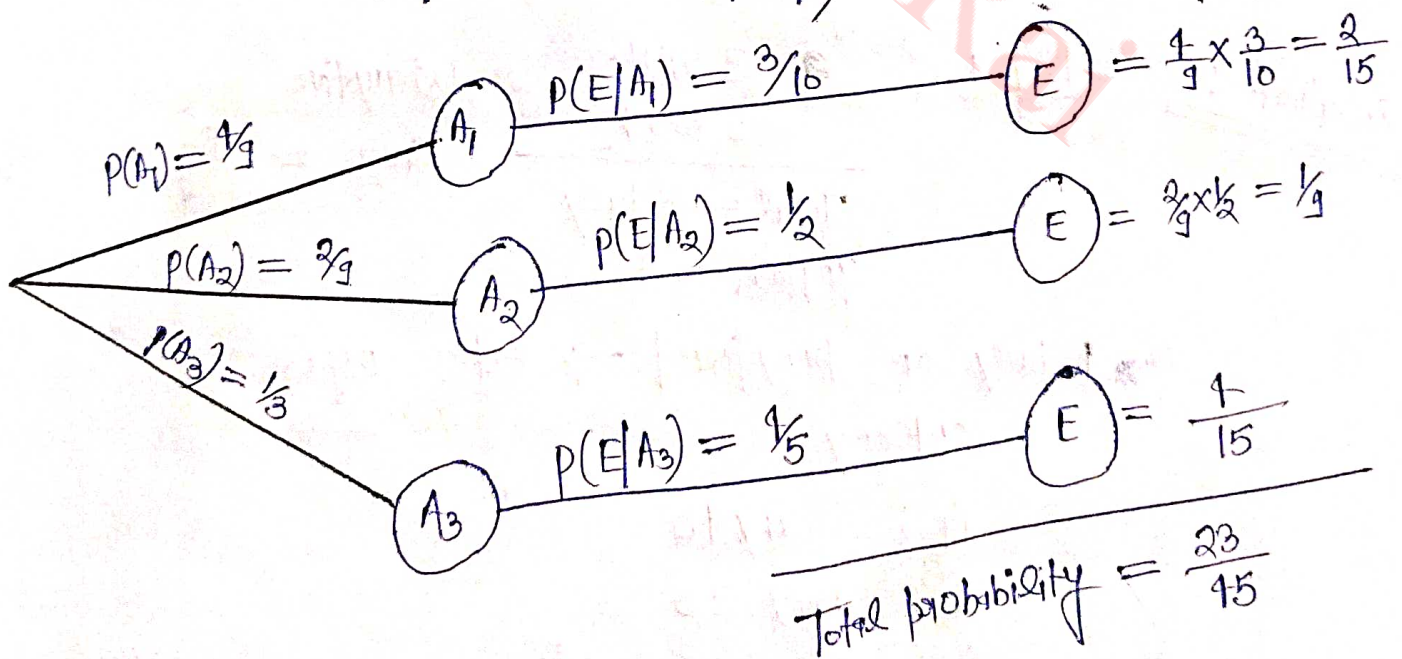 P(A₁) = 4/9
A₁
P(E|A₁) = 3/10
E
= 4/9 × 3/10 = 2/15
P(A₂) = 2/9
A₂
P(E|A₂) = 1/2
E
= 2/9 × 1/2 = 1/9
P(A₃) = 1/3
A₃
P(E|A₃) = 4/5
E
= 4/15
Total probibility = 23/45